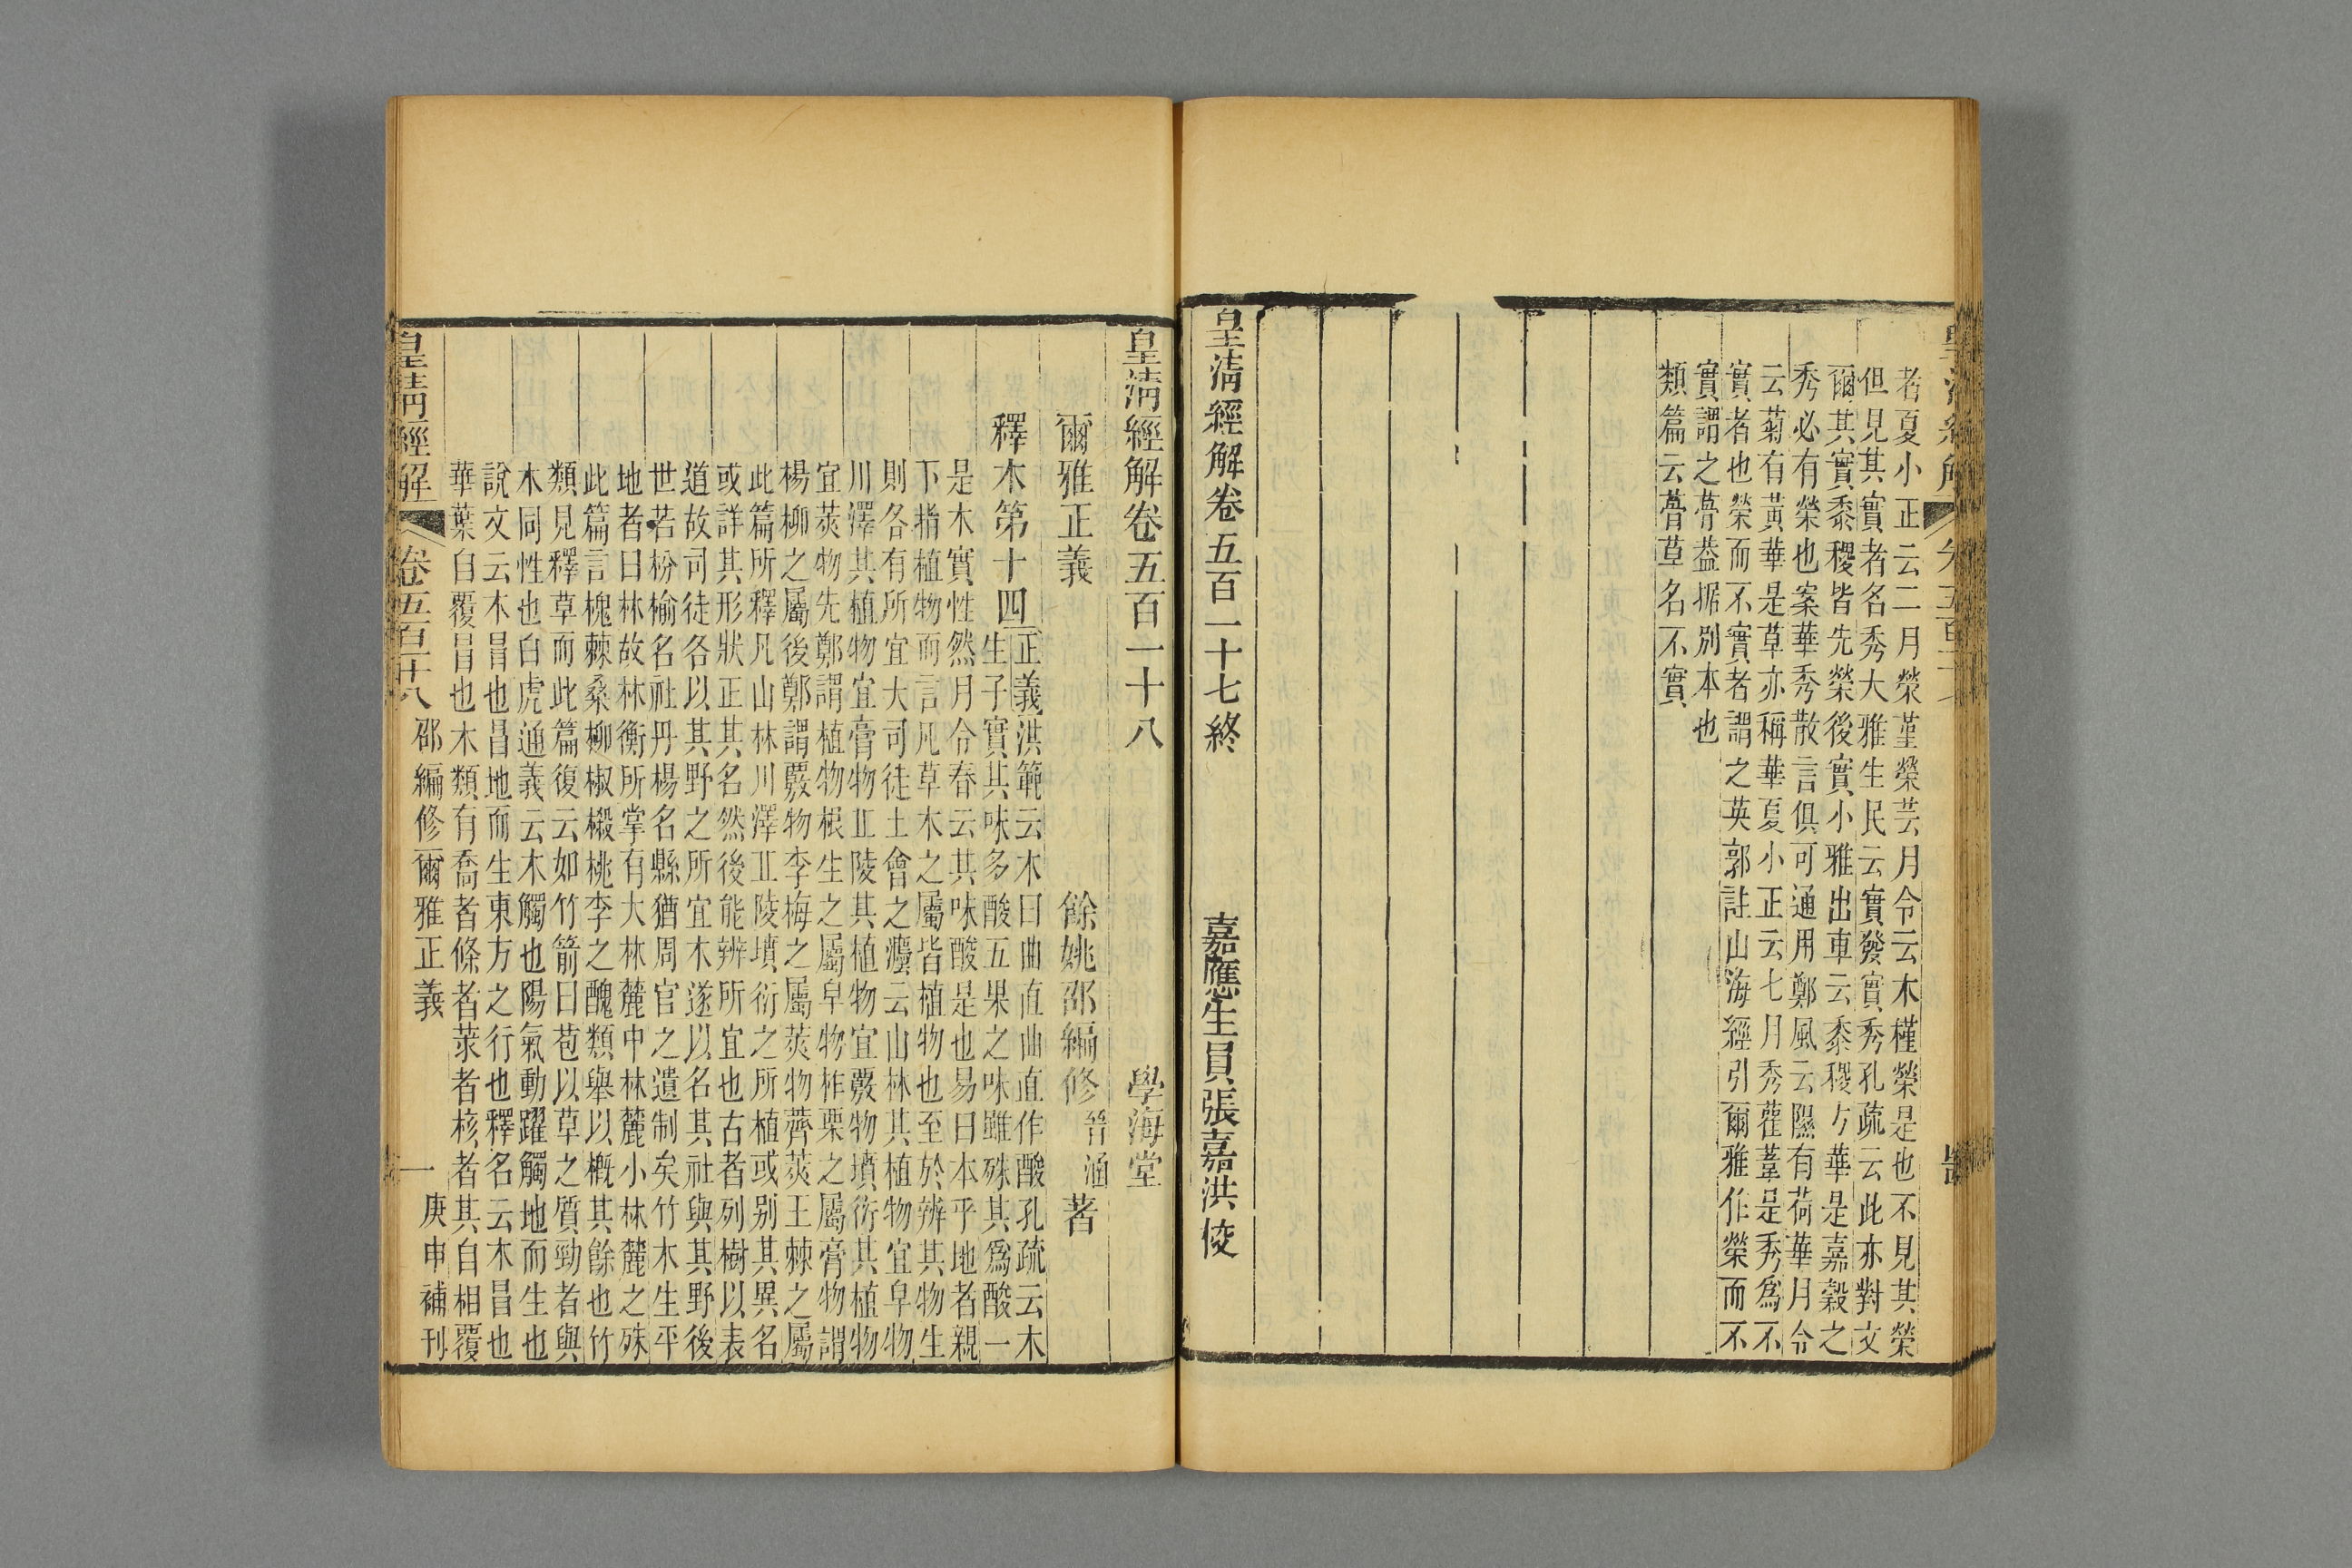 者夏小正云二月榮堇榮芸月令云木槿榮是也不見其榮
但見其實者名秀大雅生民云實發實秀孔疏云此亦對文
爾其實黍稷皆先榮後實小雅出車云黍稷方華是嘉穀之
秀必有榮也案華秀散言俱可通用鄭風云隰有荷華月令
云菊有黃華是草亦稱華夏小正云七月秀雚葦是秀爲不
實者也榮而不實者謂之英郭註山海經引爾雅作榮而不
實謂之蕢蓋據別本也
類篇云蕢草名不實
皇淸經解卷五百一十七終
嘉應生員張嘉洪校
皇淸經解卷五百一十八
學海堂
爾雅正義
餘姚邵編修晉涵著
釋木第十四
正義洪範云木曰曲直曲直作酸孔疏云木
生子實其味多酸五果之味雖殊其爲酸一
是木實性然月令春云其味酸是也易曰本乎地者親
下指植物而言凡草木之屬皆植物也至於辨其物生
則各有所宜大司徒土會之灋云山林其植物宜皁物
川澤其植物宜膏物丘陵其植物宜覈物墳衍其植物
宜莢物先鄭謂植物根生之屬皁物柞栗之屬膏物謂
楊柳之屬後鄭謂覈物李梅之屬莢物薺莢王棘之屬
此篇所釋凡山林川澤丘陵墳衍之所植或別其異名
或詳其形狀正其名然後能辨所宜也古者列樹以表
道故司徒各以其野之所宜木遂以名其社與其野後
世若枌榆名社丹楊名縣猶周官之遺制矣竹木生平
地者曰林故林衡所掌有大林麓中林麓小林麓之殊
此篇言槐棘桑柳椒樧桃李之醜類舉以槪其餘也竹
類見釋草而此篇復云如竹箭曰苞以草之質勁者與
木同性也白虎通義云木觸也陽氣動躍觸地而生也
說文云木冒也冒地而生東方之行也釋名云木冒也
華葉自覆冒也木類有喬者條者菉者核者其自相覆
皇淸經解
卷五百十八
邵編修爾雅正義
一
庚申補刊